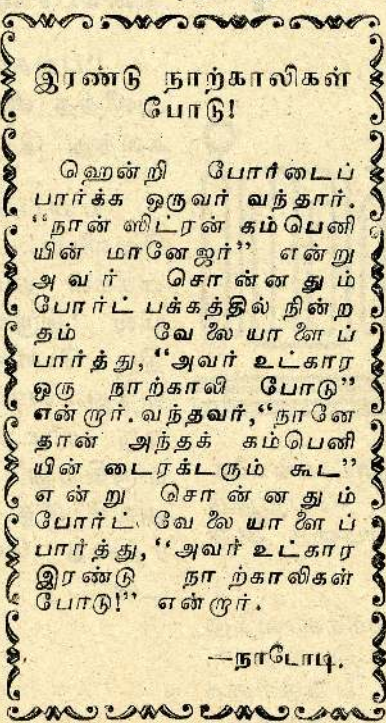 இரண்டு நாற்காலிகள்
போடு!
ஹென்றி போர்டைப்
பார்க்க ஒருவர் வந்தார்.
“நான் ஸிட்ரன் கம்பெனி
யின் மானேஜர்” என்று
அவர் சொன்னதும்
போர்ட் பக்கத்தில் நின்ற
தம் வேலையாளைப்
பார்த்து, “அவர் உட்கார
ஒரு நாற்காலி போடு”
என்றார். வந்தவர், “நானே
தான் அந்தக் கம்பெனி
யின் டைரக்டரும் கூட”
என்று சொன்னதும்
போர்ட் வேலையாளைப்
பார்த்து, “அவர் உட்கார
இரண்டு நாற்காலிகள்
போடு!” என்றார்.
—நாடோடி.